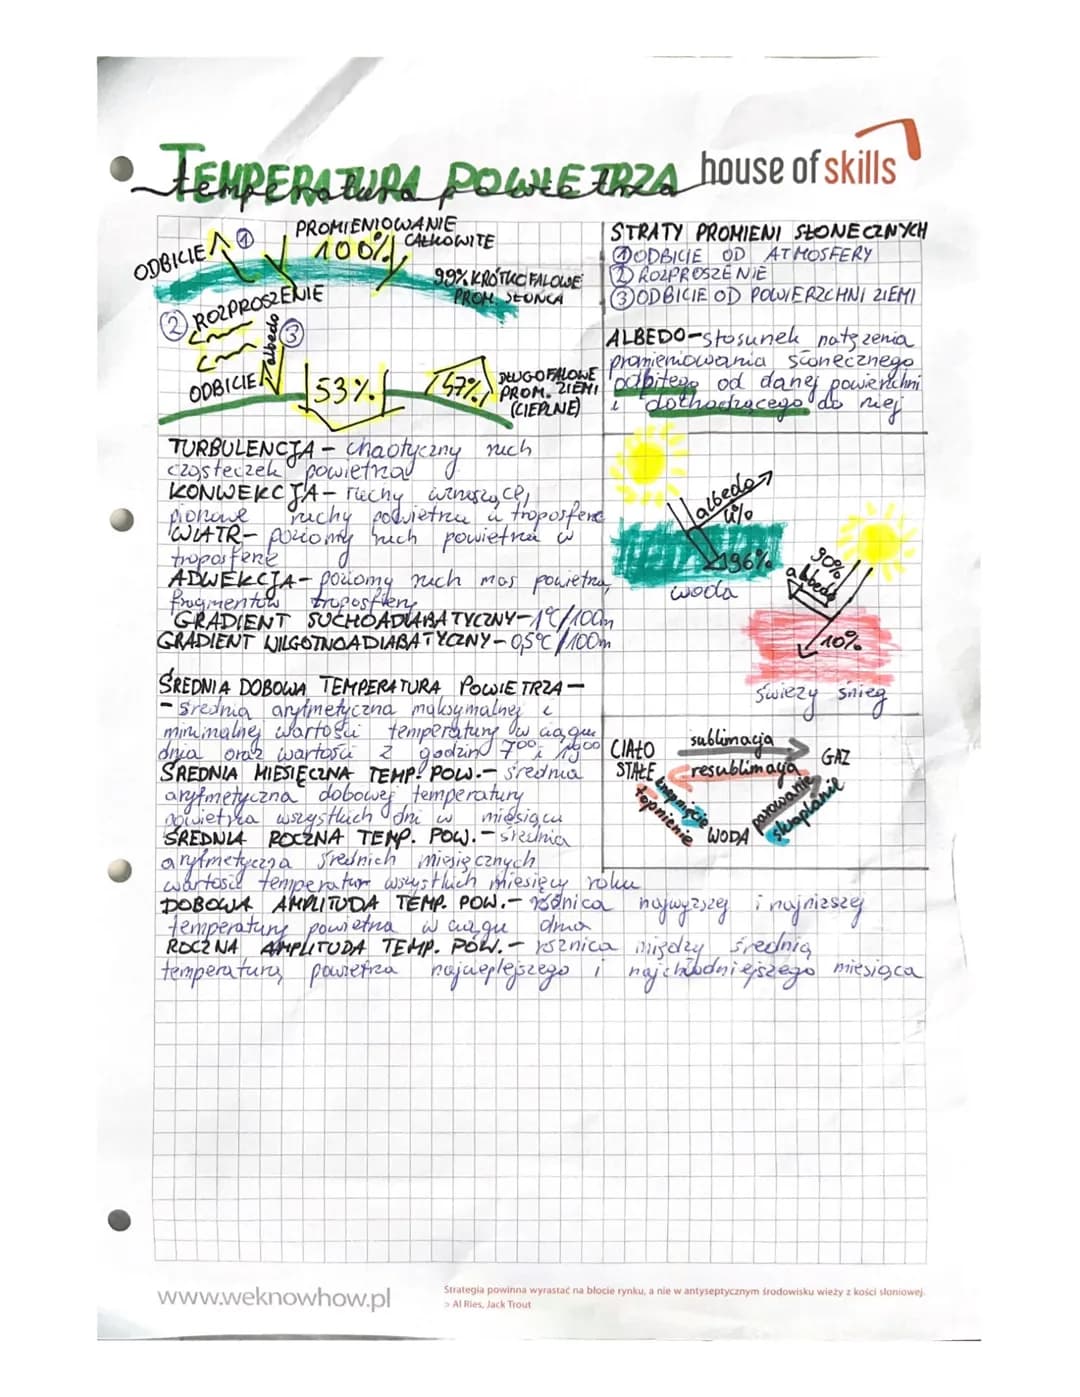 TEMPERATURA POWIETRZA
temperatura powietrza
house of skills
PROMIENIOWANIE
100% CAŁKOWITE
ODBICIE 1
99% KRÓTKOFALOWE
PROM. SŁOŃCA
2 ROZPROSZENIE
albedo 3
ODBICIE
53%
47%
DŁUGOFALOWE
PROM. ZIEMI
(CIEPLNE)
STRATY PROMIENI SŁONECZNYCH
1 ODBICIE OD ATMOSFERY
2 ROZPROSZENIE
3 ODBICIE OD POWIERZCHNI ZIEMI
ALBEDO-stosunek natężenia
promieniowania słonecznego
odbitego od danej powierzchni
i dochodzącego do niej
TURBULENCJA - chaotyczny ruch
cząsteczek powietrza
KONWEKCJA - ruchy wznoszące,
pionowe ruchy powietrza w troposferze
WIATR - poziomy ruch powietrza w
troposferze
ADWEKCJA - poziomy ruch mas powietrza,
fragmentów troposfery
GRADIENT SUCHOADIABATYCZNY - 1°C/100m
GRADIENT WILGOTNOADIABATYCZNY - 0,5°C/100m
albedo
4%
96%
woda
90%
albedo
10%
świeży śnieg
ŚREDNIA DOBOWA TEMPERATURA POWIETRZA -
- średnia arytmetyczna maksymalnej i
minimalnej wartości temperatury w ciągu
dnia oraz wartości z godzin 7⁰⁰ i 19⁰⁰
ŚREDNIA MIESIĘCZNA TEMP. POW. - średnia
arytmetyczna dobowej temperatury
powietrza wszystkich dni w miesiącu
ŚREDNIA ROCZNA TEMP. POW. - średnia
arytmetyczna średnich miesięcznych
wartości temperatur wszystkich miesięcy roku
DOBOWA AMPLITUDA TEMP. POW. - różnica najwyższej i najniższej
temperatury powietrza w ciągu dnia
ROCZNA AMPLITUDA TEMP. POW. - różnica między średnią
temperaturą powietrza najcieplejszego i najchłodniejszego miesiąca
CIAŁO
STAŁE
sublimacja
resublimacja
GAZ
krzepnięcie
topnienie
WODA
parowanie
skraplanie
www.weknowhow.pl
Strategia powinna wyrastać na błocie rynku, a nie w antyseptycznym środowisku wieży z kości słoniowej.
> Al Ries, Jack Trout